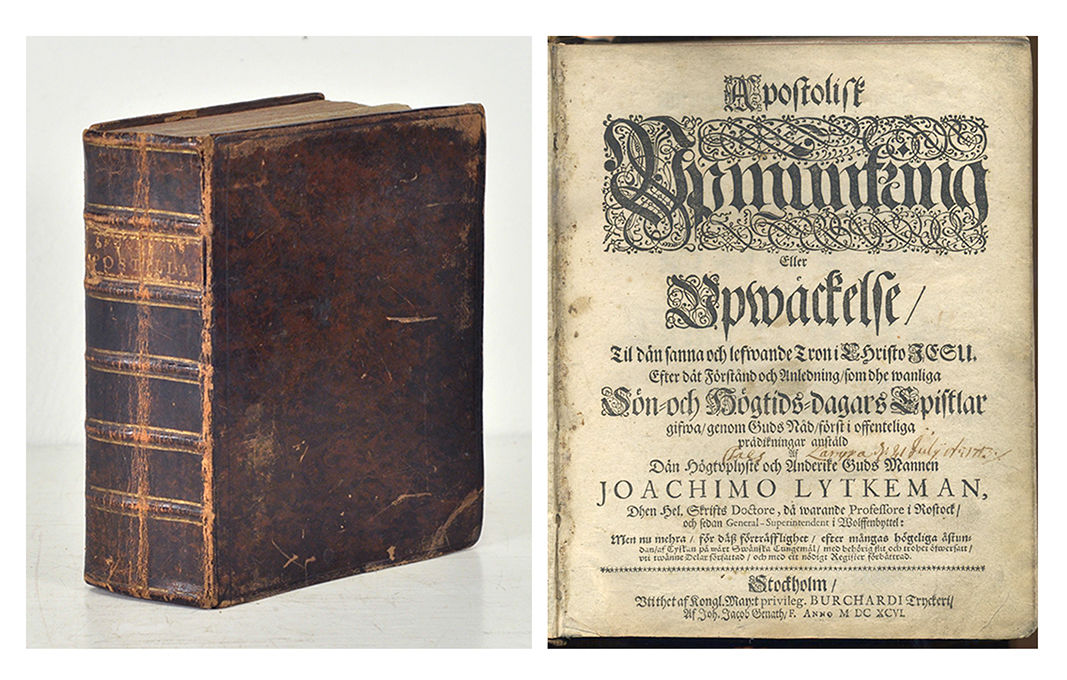 POSTILLA
Apostolisk
Vpmuntring
Eller
Vpwäckelse/
Til dän sanna och lefwande Tron i CHristo JESU.
Efter dät Förstånd och Anledning/som dhe wanliga
Sön-och Högtids-dagars Epistlar
gifwa/genom Guds Nåd/först i offenteliga
prädikningar anståld
Af
Dän Högtvplyste och Anderike Guds Mannen
JOACHIMO LYTKEMAN,
Dhen Hel. Skrifts Doctore, då warande Professore i Rostock/
och sedan General-Superintendent i Wolffenbyttel:
Men nu mehra/för däß förträfflighet/efter mångas högeliga åstun-
dan/af Tyskan på wårt Swänska Tungemål/med behörig flit och trohet öfwersatt/
uti twänne Delar författad/och med ett nödigt Register förbättrad.
Stockholm/
Vtithet af Kongl. May:t privileg. BURCHARDI Tryckeri/
Af Joh. Jacob Genath/F. ANNO M DC XCVI.